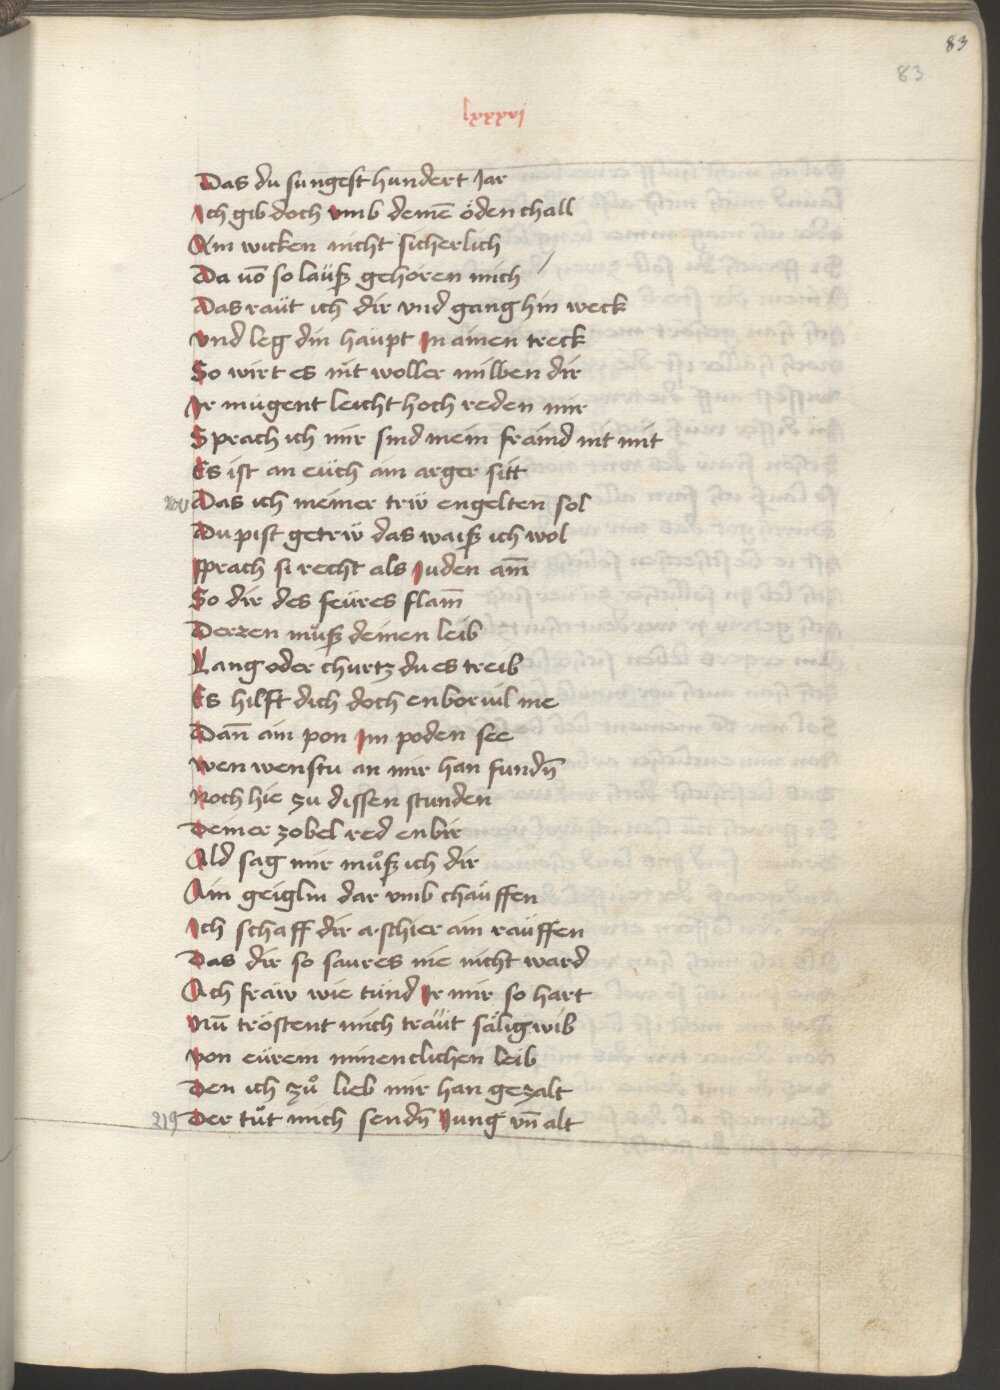 83
83
lxxxvi
Das du sungest hundert Jar
Ich gib doch vmb deinē öden chall
Ain wicken nicht sicherlich
Da võ so lauß gehören mich
Das raüt ich dir vnd gang hin weck
vnd leg din haüpt In ainen treck
So wirt es nit woller milben dir
Ir mügent leicht hoch reden mir
Sprach ich mir sind mein fraind nit mit
Es ist an eüch ain arger sitt
200 Das ich meiner trẅ engelten sol
Du pist getrẅ das waiß ich wol
sprach si recht als Juden am̄
So dir des feüres flam̄
Derzen mu̇ß deinen leib
Lang oder churtz du es treib
Es hilft dich doch enborvil me
Dan̄ ain pon Im poden see
wen wenstu an mir han fundn̄
Noch hie zu dissen stunden
Deiner zobel red enbir
Ald sag mir muͦß ich dir
Ain geiglin dar vmb chaüffen
Ich schaff dir a schier ain raüffen
Das dir so saures nie nicht ward
Ach fraẅ wie tünd Ir mir so hart
Nū tröstent mich traüt sälig wib
von eürem minenclichen leib
Den ich zuͦ lieb mir han gezalt
219 Der tuͦt mich sendn̄ Jung vn̄ alt